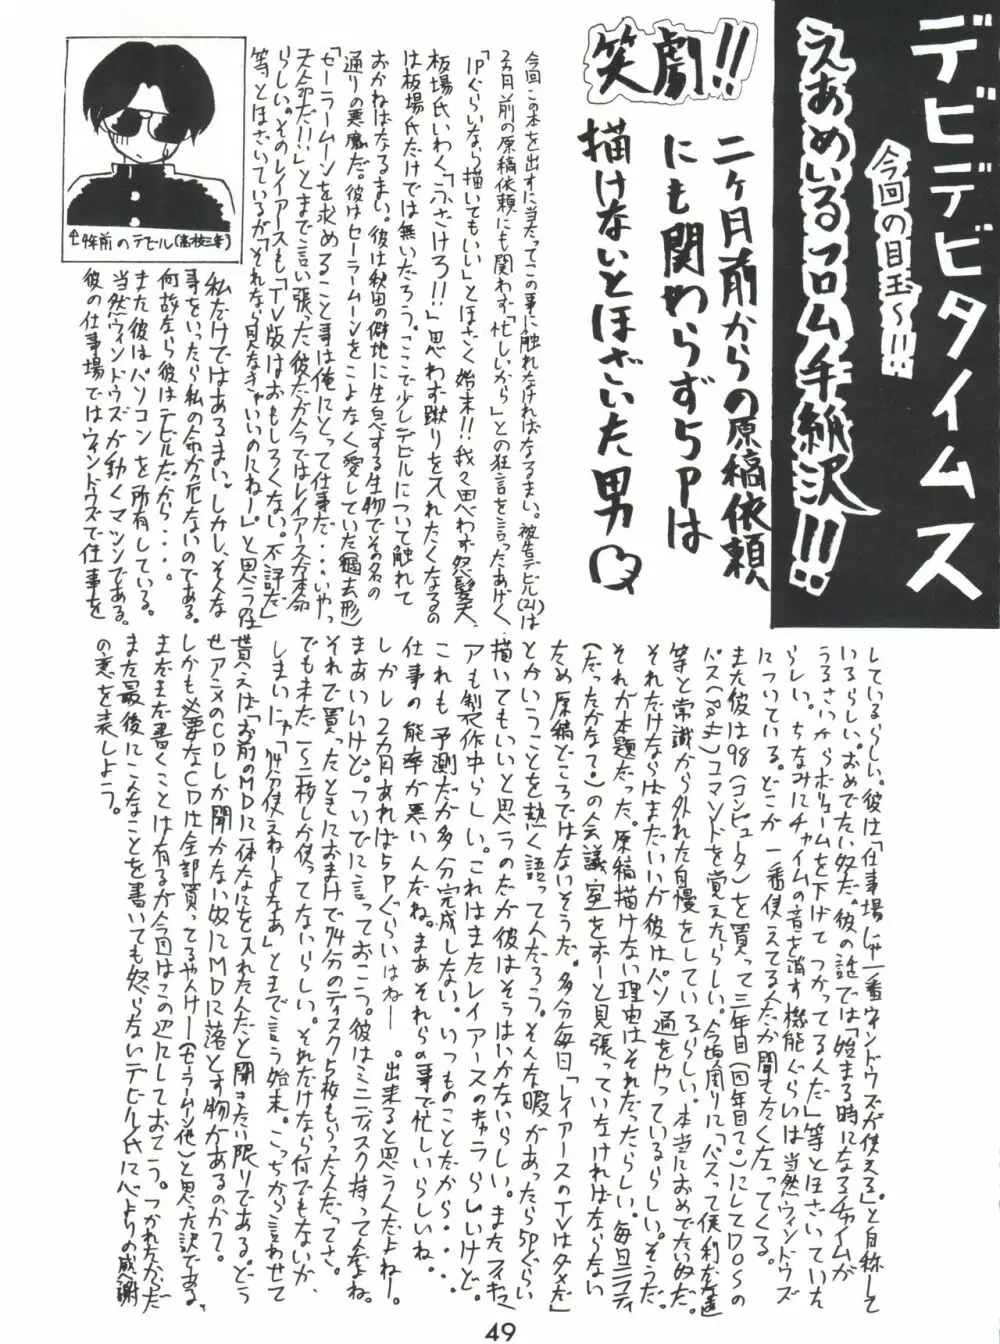 デビデビタイムス
今回の目玉〜!!!
えあめいるフロム手紙沢!!!
笑劇!!
二ヶ月前からの原稿依頼
にも関わらず5Pは
描けないとほざいた男
今回この本を出すに当たってこの事に触れなければなるまい。被告デビル(21)は
2ヵ月前の原稿依頼にも関わず「忙しいから」との狂言を言ったあげく、
「1Pぐらいなら描いてもいい」とほざく始末!!我々思わず怒髪天、
板場氏いわく「ふざけろ!!」思わず蹴りを入れたくなるの
は板場氏だけでは無いだろう。ここで少しデビルについて触れて
おかねばなるまい。彼は秋田の僻地に生息する生物でその名の
通りの悪魔だ。彼はセーラームーンをこよなく愛していた(過去形)
「セーラームーンを求めること事は俺にとって仕事だ・・・いやっ
天命だ!!」とまで言い張った彼だが今ではレイアースが本命
らしい。そのレイアースも「TV版はおもしろくない。不評だ」
等とほざいているが「それなら見なきゃいいのにねー」と思うのは
私だけではあるまい。しかし、そんな
事をいったら私の命が危ないのである。
何故なら彼はデビルだから・・・・。
また彼はパソコンを所有している。
当然ウィンドウズが動くマシンである。
彼の仕事場ではウィンドウズで仕事を
↑4年前のデビル(高校三年)
しているらしい。彼は「仕事場じゃ一番ウィンドウズが使える」と自称して
いるらしい。おめでたい奴だ。彼の話では「始まる時になるチャイムが
うるさいからボリュームを下げてつかってるんだ」等とほざいていた
らしい。ちなみにチャイムの音を消す機能ぐらいは当然ウィンドウズ
についている。どこが一番使えてる人だか聞きたくなってくる。
また彼は98(コンピュータ)を買って三年目(四年目?)にしてDOSの
パス(Path)コマンドを覚えたらしい。今頃周りに「パスって便利だな」
等と常識から外れた自慢をしているらしい。本当におめでたい奴だ。
それだけならばまだいいが彼はパソ通をやっているらしい。そうだ。
それが本題だった。原稿描けない理由はそれだったらしい。毎日ニフティ
(だったかな?)の会議室をずーと見張っていなければならない
ため原稿どころではないそうだ。多分毎日「レイアースのTVはダメだ」
とかいうことを熱く語ってんだろう。そんな暇があったら5Pぐらい
描いてもいいと思うのだが彼はそうはいかないらしい。またフィギュ
アも製作中らしい。これはまたレイアースのキャラらしいけど。
これも予測だが多分完成しない。いつものことだから・・・
仕事の能率が悪いんだね。まあそれらの事で忙しいらしいね。
しかし2カ月あれば5Pぐらいはねー。出来ると思うんだよねー。
まあいいけど。ついでに言っておこう。彼はミニディスク持ってんだよね。
それで買ったときにおまけで74分のディスク5枚もらったんだってさ。
でも未だ1〜2枚しか使ってないらしい。それだけなら何でもないが、
しまいにゃ「74分使えねーよなあ」とまで言う始末。こっちから言わせて
貰えば「お前のMDに一体なにを入れたんだと聞きたい限りである。どう
せアニメのCDしか聞かない奴にMDに落とす物があるのか?
しかも必要なCDは全部買ってるやんけー(セーラームーン他)と思った訳である。
まだまだ書くことは有るが今回はこの辺にしておこう。つかれたから。だ
また最後にこんなことを書いても怒らないデビル氏にべよりの感謝
の意を表しよう。
49